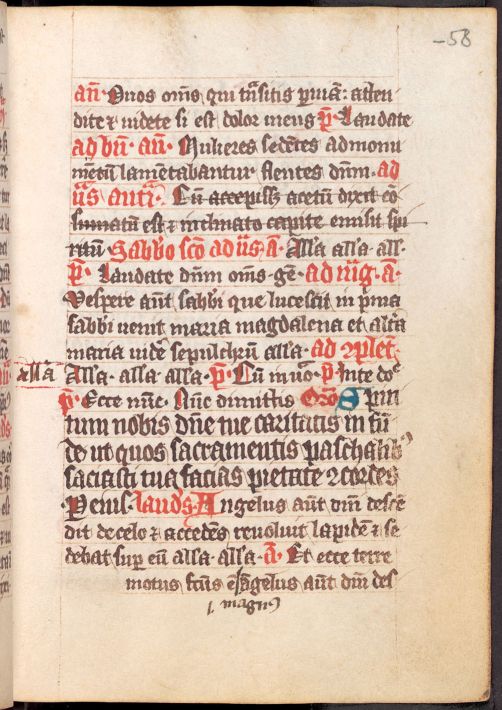 58
an̄. Quos om̄s qui tn̄sitis ꝑ uiā: atten
dite ⁊ uidete si est dolor meus p̄. Laudate
ad bn̄. an̄. Mulieres sedētes ad monu
mētū lamētabantur flentes dn̄m. ad
Cū accepiss acetū dixit cō
sumatū est ⁊ inclinato capite emisit spi
ritū Sabbo sc̄o ad ūs a. All'a all'a all'.
p̄. Laudate dn̄m om̄s gē. ad m̄g. a.
Vespere aūt sabbi que lucescit in pⁱma
sabbi uenit maria magdalena et alt'a
maria uidē sepulchrū all'a. ad ꝯplet.
all'a All'a. all'a all'a. p̄. Cū īuō. p̄. Inte do
p̄. Ecce nūc. Nūc dimittis Oro Spiri
tum nobis dn̄e tue caritatis in fū
de ut quos sacramentis paschalibꝰ
saciasti tua facias pietate ꝯcordes
P eius. lauds. Angelus aūt dn̄i descē
dit de celo ⁊ accedēs reuoluit lapidē ⁊ se
debat suꝑ eū all'a. all'a. a. Et ecce terre
motus fc̄us ē Angelus aūt dn̄i des
magnꝰ